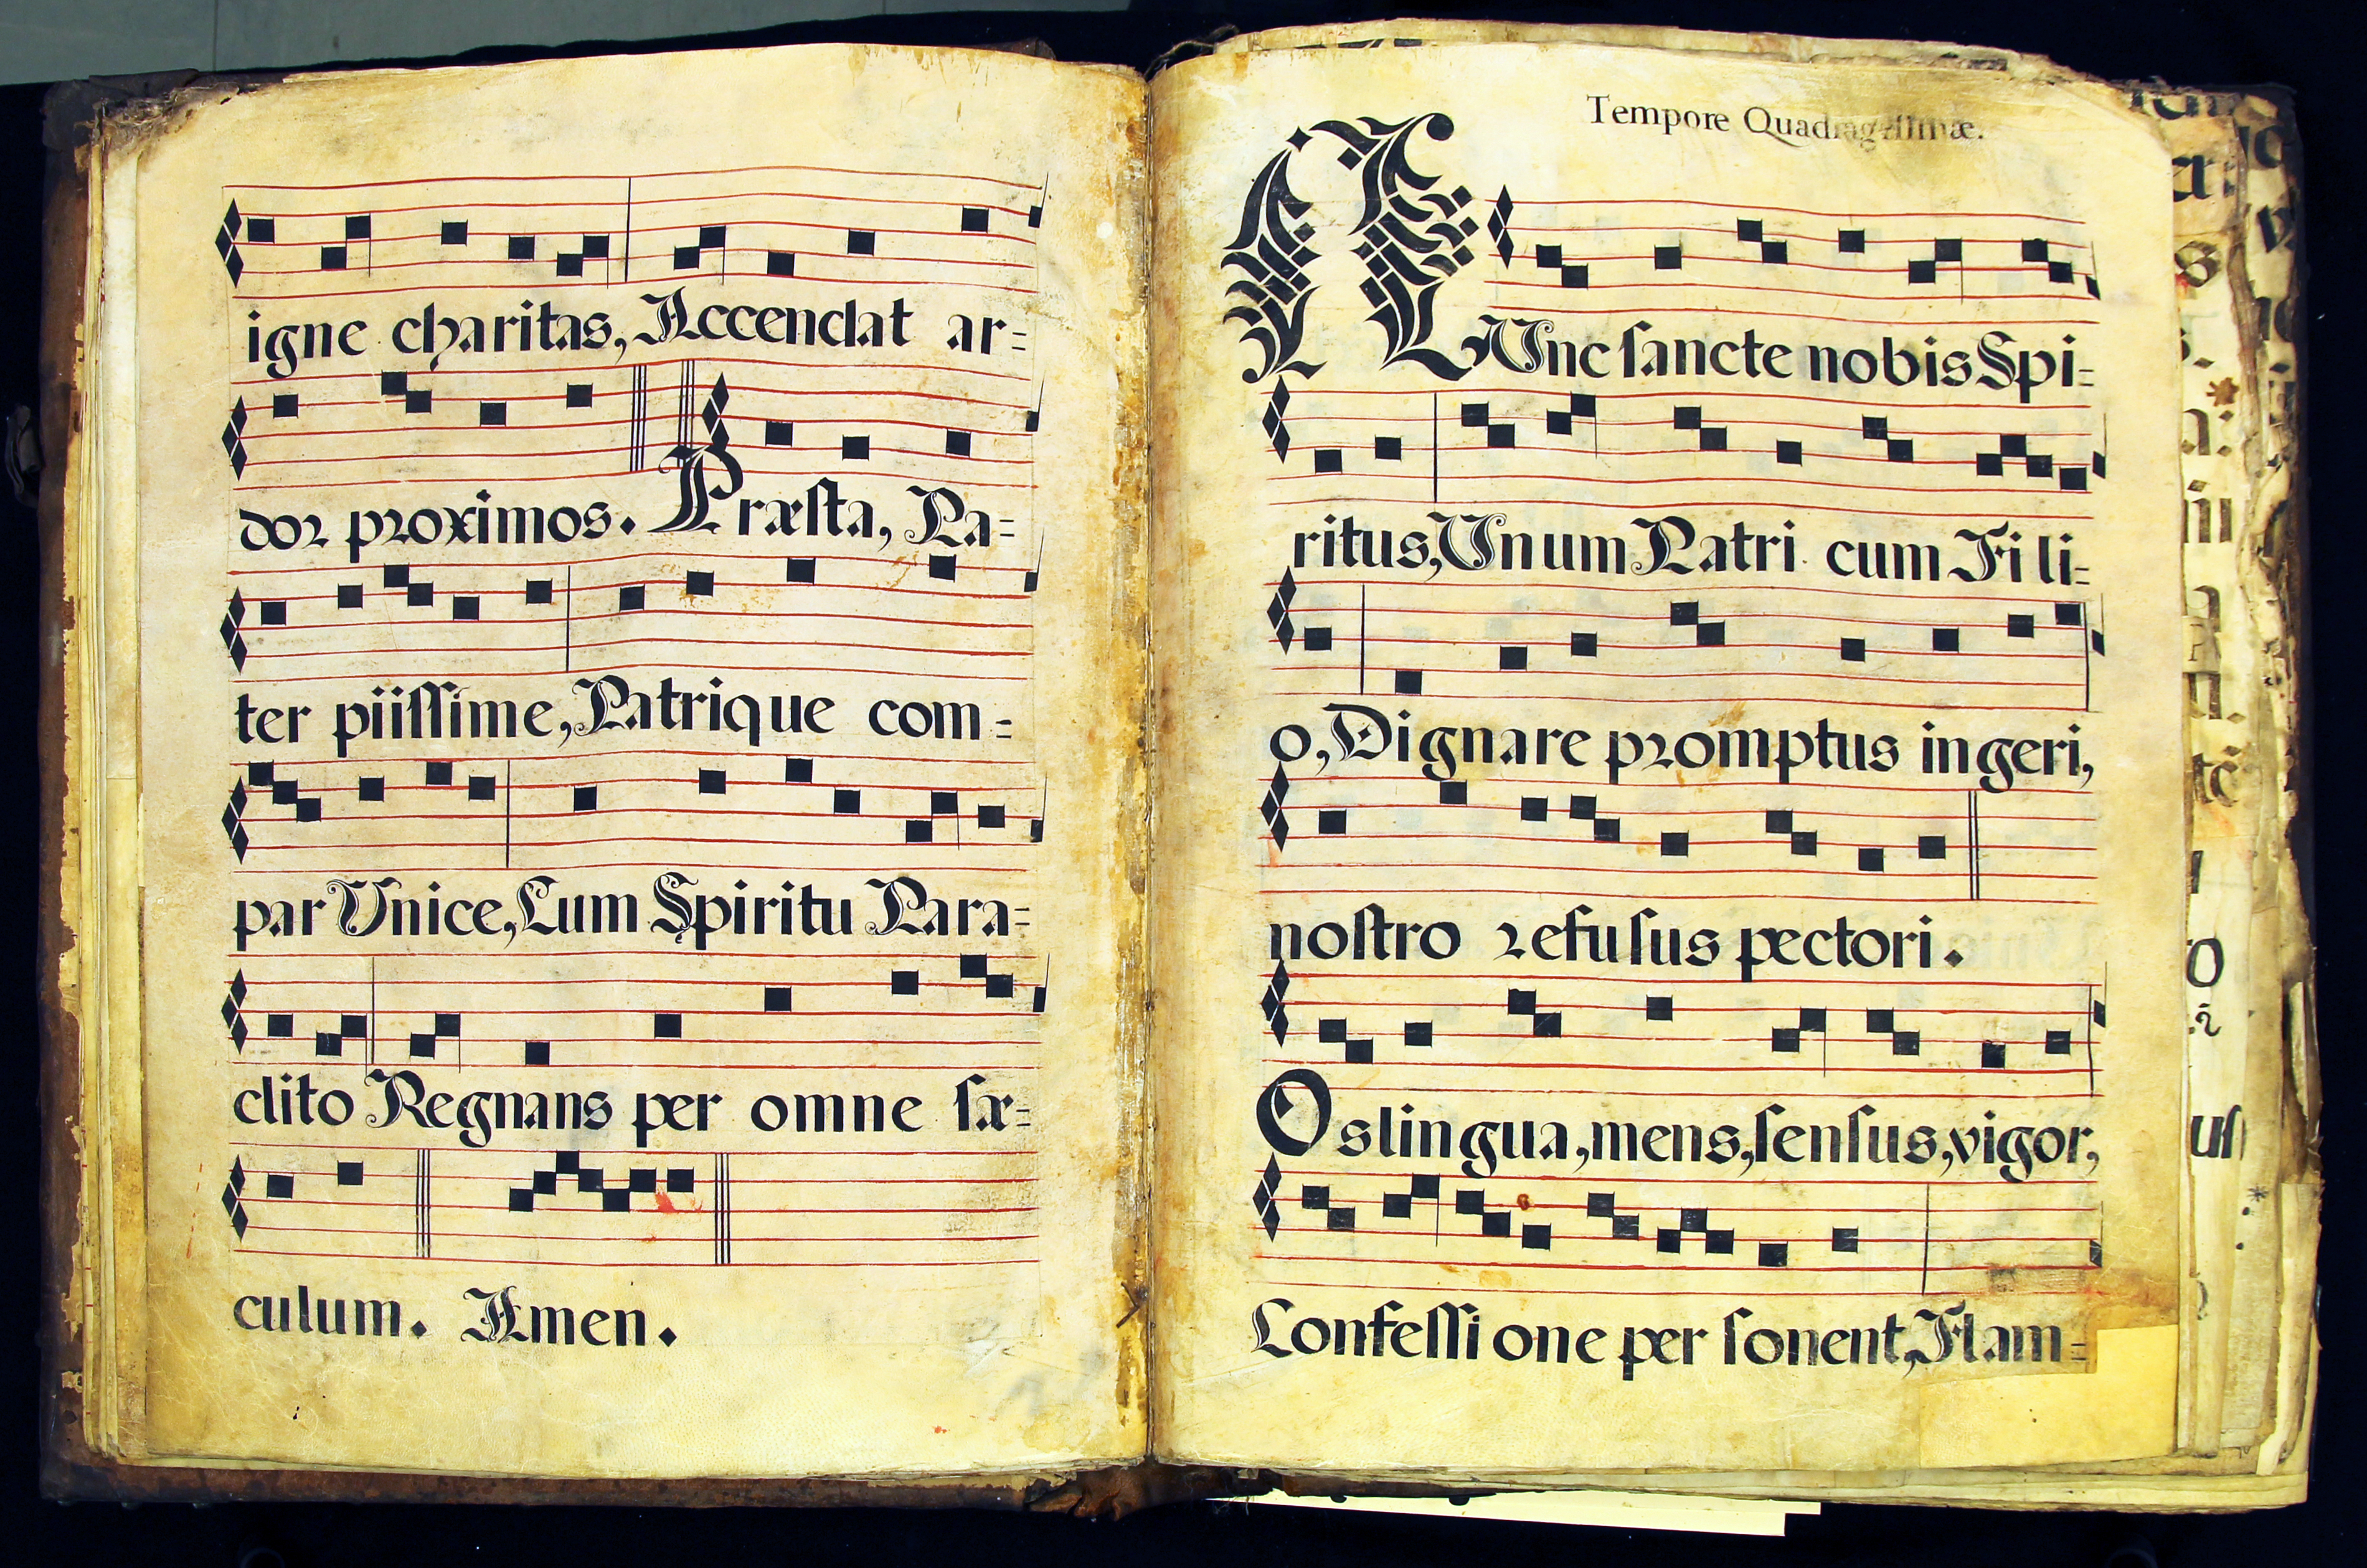 igne charitas, Accendat ar=
dor proximos. Præſta, Pa=
ter piiſſime, Patrique com=
par Unice, Cum Spiritu Para=
clito Regnans per omne ſæ=
culum. Amen.
Tempore Quadrageſimæ.
NUnc ſancte nobis Spi=
ritus, Unum Patri cum Fili=
o, Dignare promptus ingeri,
noſtro refuſus pectori.
Os lingua, mens, ſenſus, vigor,
Confeſſione perſonent, Flam=